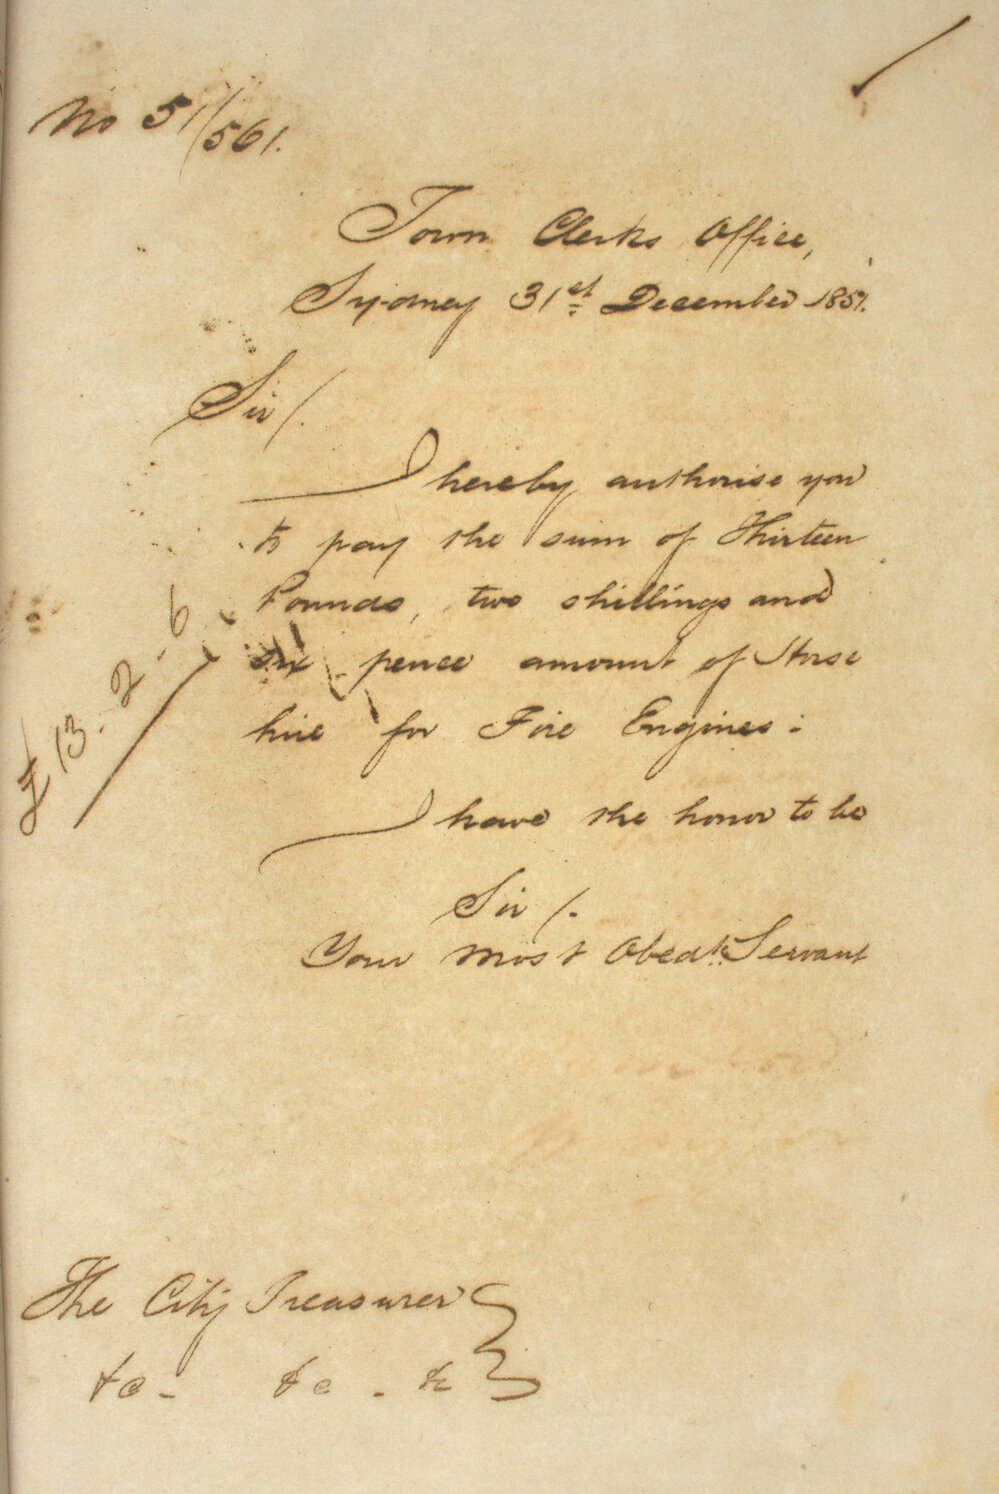 No 51/561.
Town Clerks Office,
Sydney 31st December 1851.
Sir/.
I hereby authorise you
to pay the sum of Thirteen
Pounds, two shillings and
six pence amount of Horse
hire for Fire Engines:
£13-2-6
I have the honor to be
Sir/.
Your most Obedt. Servant
The City Treasurer
&c- &c-&c